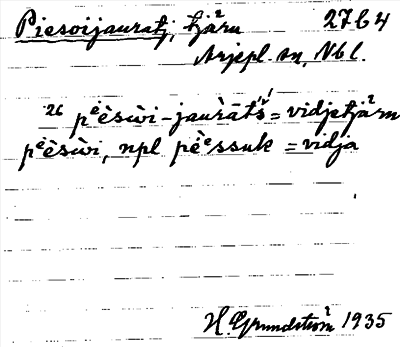 Piesoijauratj, tjärn 27 b 4
Arjepl. sn, Nbl.
26 pᵉèsẁi-jaurātš́ = vidjetjärn
pᵉèsẁi, npl pèᵉssuk = vidja
H. Grundström 1935